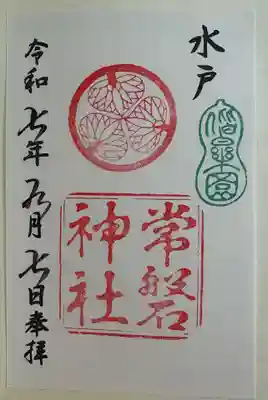 水戸
偕樂園
常磐
神社
令和七年九月七日奉拝